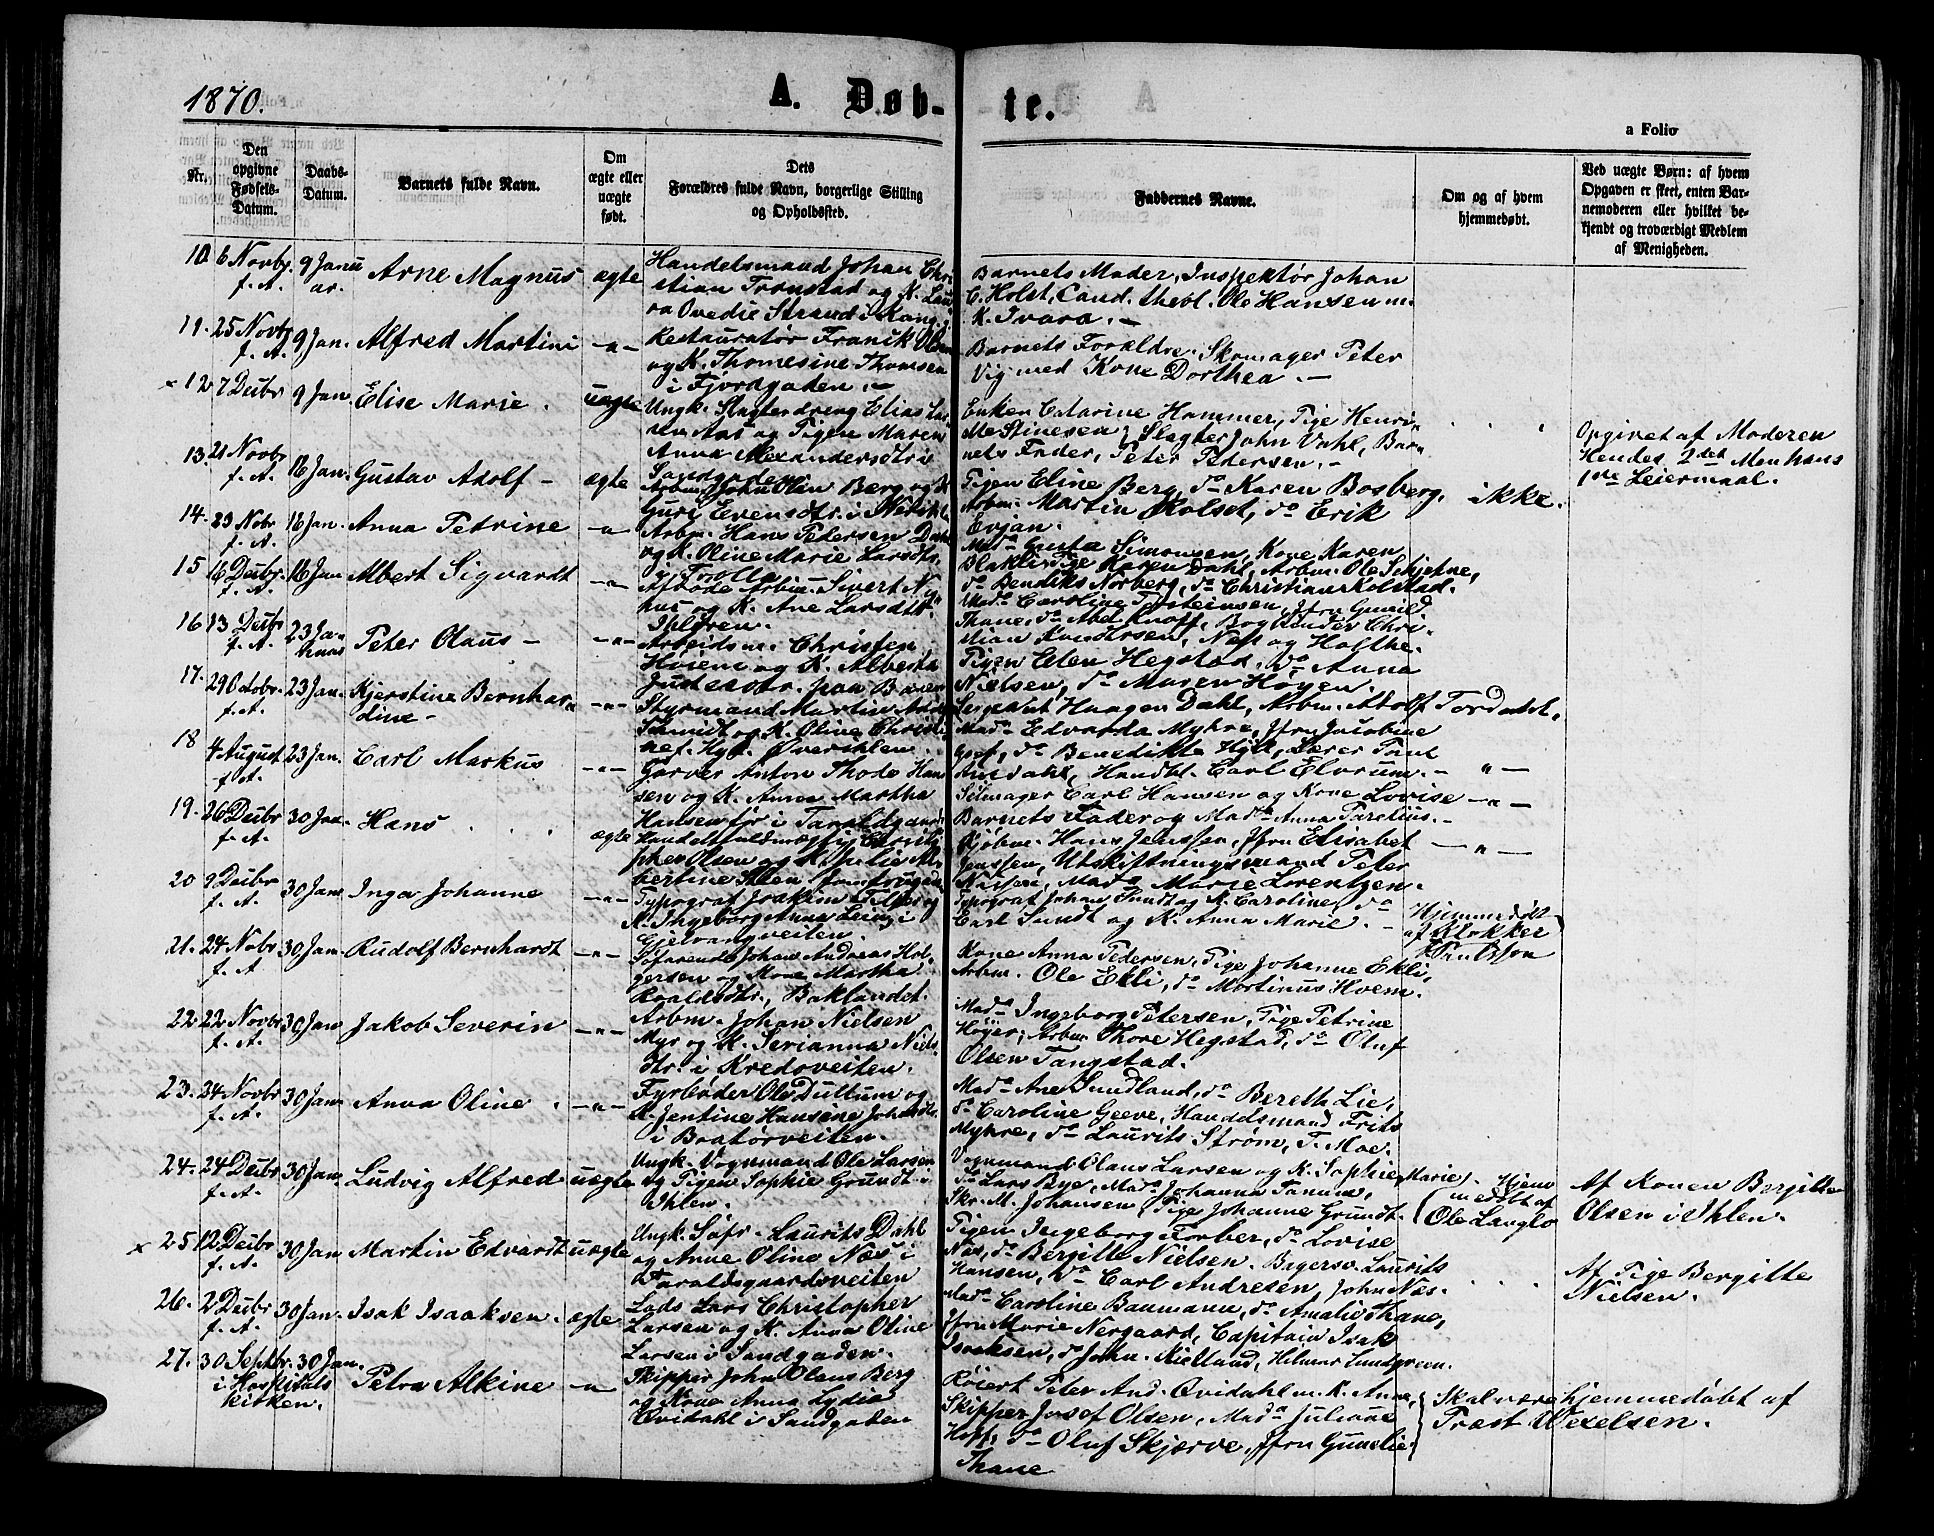 1870.
A. Døb-
te.
a Folio
Nr.
Den opgivne Fødsels-Datum.
Daabs-Datum.
Barnets fulde Navn.
Om ægte eller uægte født.
Dets Forældres fulde Navn, borgerlige Stilling og Opholdssted.
Faddernes Navne.
Om og af hvem hjemmedøbt.
Ved uægte Børn: af hvem Opgaven er skeet, enten Barnemoderen eller hvilket bekjendt og troværdigt Medlem af Menigheden.
10 6 Novbr. f. A. 9 Januar. Arne Magnus ægte
Handelsmand Johan Chri-
stian Trønstad og K. Lau-
ra Ovedie Strand i Kong.
Barnets Moder, Inspektør Johan
C. Holst, Cand. theol. Ole Hansen m.
K. Ivara. –
11. 25 Novbr f. A. 9 Jan. Alfred Martini –"–
Restauratør Franik Olsen
og K. Thomesine Thomsen
i Fjordgaden. –
Barnets Forældre. Skomager Peter
Vig med Kone Dorthea. –
× 12 7 Debr 9 Jan Elise Marie. uægte
Ungk. Slagterdreng Elias Lar-
sen Aas og Pigen Maren
Anna Alexandersdtr i
Sandgaden
Enken Catarine Hammer, Pige Henri-
ette Stinesen, Slagter John Vahl, Bar-
nets Fader, Peter Petersen. –
Opgivet af Moderen
Hendes 2det Men hans
1ste Leiermaal.
13. 21 Novbr f. A. 16 Jan. Gustav Adolf – ægte
Arbm. John Olsen Berg og K.
Guri Evensdtr. i
Pigen Eline Berg, do Karen Bosberg,
Arbm. Martin Holset, do Erik
Evjan.
ikke.
14. 23 Nobr f. A. 16 Jan. Anna Petrine –"–
Arbm. Hans Petersen Dahl
og K. Oline Marie Larsdtr,
i Trolla
Mada Gusta Simonsen, Kone Karen
Blakli, Pige Karen Dahl, Arbm. Ole Schjetne,
do Bendiks Norberg, do Christian Kolstad.
15 16 Debr. f. A. 16 Jan Albert Sigvardt –"–
Afdøde Arbm. Sivert Ny-
hus og K. Ane Larsdtr.
Ihlevren.
Mada Caroline Torsteinsen, Jfru Gunild
Thane, do Knoff, Bogbinder Chri-
stian Knudsen, Næss og Holthe.
16 13 Debr f. A. 23 Januar Peter Olaus –"–
Arbeidsm. Christen
Høsens og K. Alberta
Justensdtr. paa Baren
Pigen Elen Hegstad, do Anna
Nielsen, do Maren Høyen.
17. 29 Octobr. f. A. 23 Jan. Kjerstine Bernhar-
dine –"–
Styrmand Martin
Schmidt og K. Oline Christi-
ne f. Hyll Øverihlen.
Sergeant Haagen Dahl, Arbm. Adolf Tordahl,
Mada Edvarda Myhre, Jfru Jacobine
18 4 August f. A. 23 Jan. Carl Markus –"–
Garver Anton Thode Han-
sen og K. Anna Martha
Hansen for i Taraldsgaard
Græf, do Benedikte Hyll, Lærer Paul
Aasdahl, Handbl. Carl Elvrum. –
Seilmager Carl Hansen og Kone Lovise
Barnets Fader og Mada Anna Taretius. –
–"–
–"–
19. 26 Debr f. A. 30 Jan. Hans ægte
Handelsfuldmægtig Christo-
pher Olsen og K. Julie Al-
bertine Ihlen. Jomfrugaden
Kjøbm. Hans Jenssen, Jfru Elisabet
Jenssen, Utskiftningsmand Peter
Nissen, Mada Marie Lorentzen.
–"–
20 9 Debr f. A. 30 Jan Inga Johanne –"–
Typograf Joakim Filser og
K. Ingeborg Anna Lein i
Gjelvangveiten.
Typograf Johan Sundt og K. Caroline, do
Carl Sundt og K. Anna Marie. –
Hjemmedøbt
af Klokker
Paulsson
21. 24 Nobr. f. A 30 Jan. Rudolf Bernhardt –"–
Søfarende Johan Andreas Hol-
gersen og Kone Martha
Roaldsdtr., Baklandet.
Kone Anna Pedersen, Pige Johanne Ekli,
Arbm. Ole Ekli, do Martinus Hvem.
22. 22 Novbr f. A. 30 Jan Jakob Severin –"–
Arbm. Johan Nielsen
Myr og K. Serianna Niels-
dtr. i Kredoveiten.
Mada Ingeborg Petersen, Pige Petrine
Høyer, Arbm. Thore Hegstad, do Oluf
Olsen Tangstad.
23. 24 Novbr f. A. 30 Jan. Anna Oline. –"–
Fyrbøder Ole Dullum og
K. Jentine Hansine Johansdtr.
i Bratørveiten.
Mada Ane Sundland, do Bereth Lie,
do Caroline Geeve, Handdsmand Frits
Myhre, do Laurits Strøm, T. Moe.
24. 24 Debr f. A. 30 Jan. Ludvig Alfred uægte
Ungk. Vognmand Ole Larsen
og Pigen Sophie Grundt i
Ihlen.
Vognmand Olaus Larsen og K. Sophie Marie,
do Lars Bye, Mada Johanna Tanum,
Skr. M. Johansen, Pige Johanne Grundt.
Hjem
medøbt af
Ole Langlo
Af Konen Bergitte
Olsen i Ihlen.
× 25. 12 Debr f. A. 30 Jan Martin Edvardt uægte
Ungk. Søfr. Laurits Dahl
og Anne Oline Næs i
Taraldsgaardsveiten
Pigen Ingeborg Forber, do Lovise
Næs, do Bergitte Nielsen. Bagersv. Laurits
Hansen, do Carl Andresen, John Næs.
Af Pige Bergitte
Nielsen.
26. 2 Debr f. A. 30 Jan. Isak Isaaksen. ægte
Lods Lars Christopher
Larsen og K. Anna Oline
Larsen i Sandgaden.
Mada Caroline Baumann, do Amalie Thane,
Jfru Marie Nergaard, Capitain Isak
Isaksen, do John. Kielland, Hilmar Lundgreen.
27. 30 Septbr. 30 Jan. i Hospitals kirken. Petra Alkine –"–
Skipper John Olaus Berg
og Kone Anna Lydia
Qvidahl i Sandgaden
Røiert Peter And. Qvidahl m. K. Anne,
Skipper Josef Olsen, Mada Juliane
Hopf, do Oluf Skjerve, Jfru Gunelie
Thane
Skal være hjemmedøbt af
Prost Wexelsen.